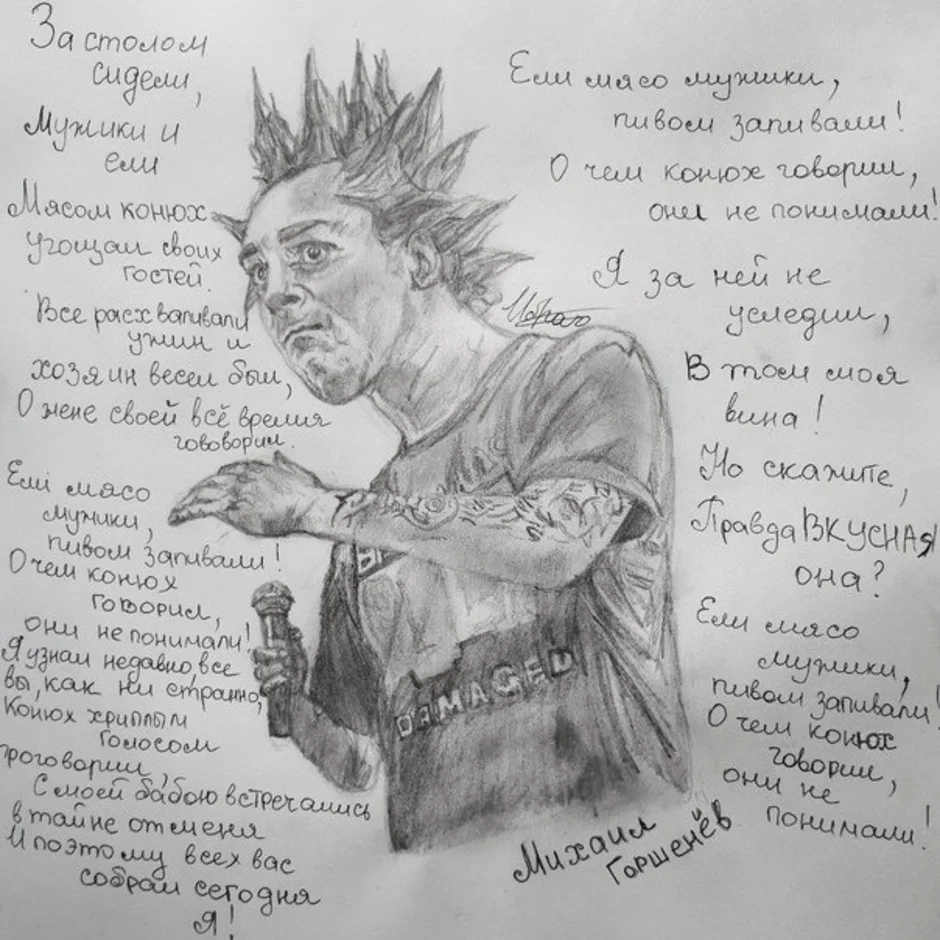 За столом
сидели,
Мужики и
ели
Мясом конюх
Угощал своих
гостей.
Все расхваливали
ужин и
хозяин весел был,
О жене своей всё время
гововорил.
Ели мясо
мужики,
пивом запивали!
О чем конюх
говорил,
они не понимали!
Я узнал недавно, все
вы, как ни странно,
Конюх хриплым
голосом
проговорил,
С моей бабою встречались
в тайне от меня
И поэтому всех вас
собрал сегодня
Я!
Ели мясо мужики,
пивом запивали!
О чем конюх говорил,
они не понимали!
Я за ней не
уследил,
В том моя
вина!
Но скажите,
Правда ВКУСНАЯ
она?
Ели мясо
мужики,
пивом запивали!
О чем конюх
говорил,
они не
понимали!
DAMAGED
Михаил
Горшенёв